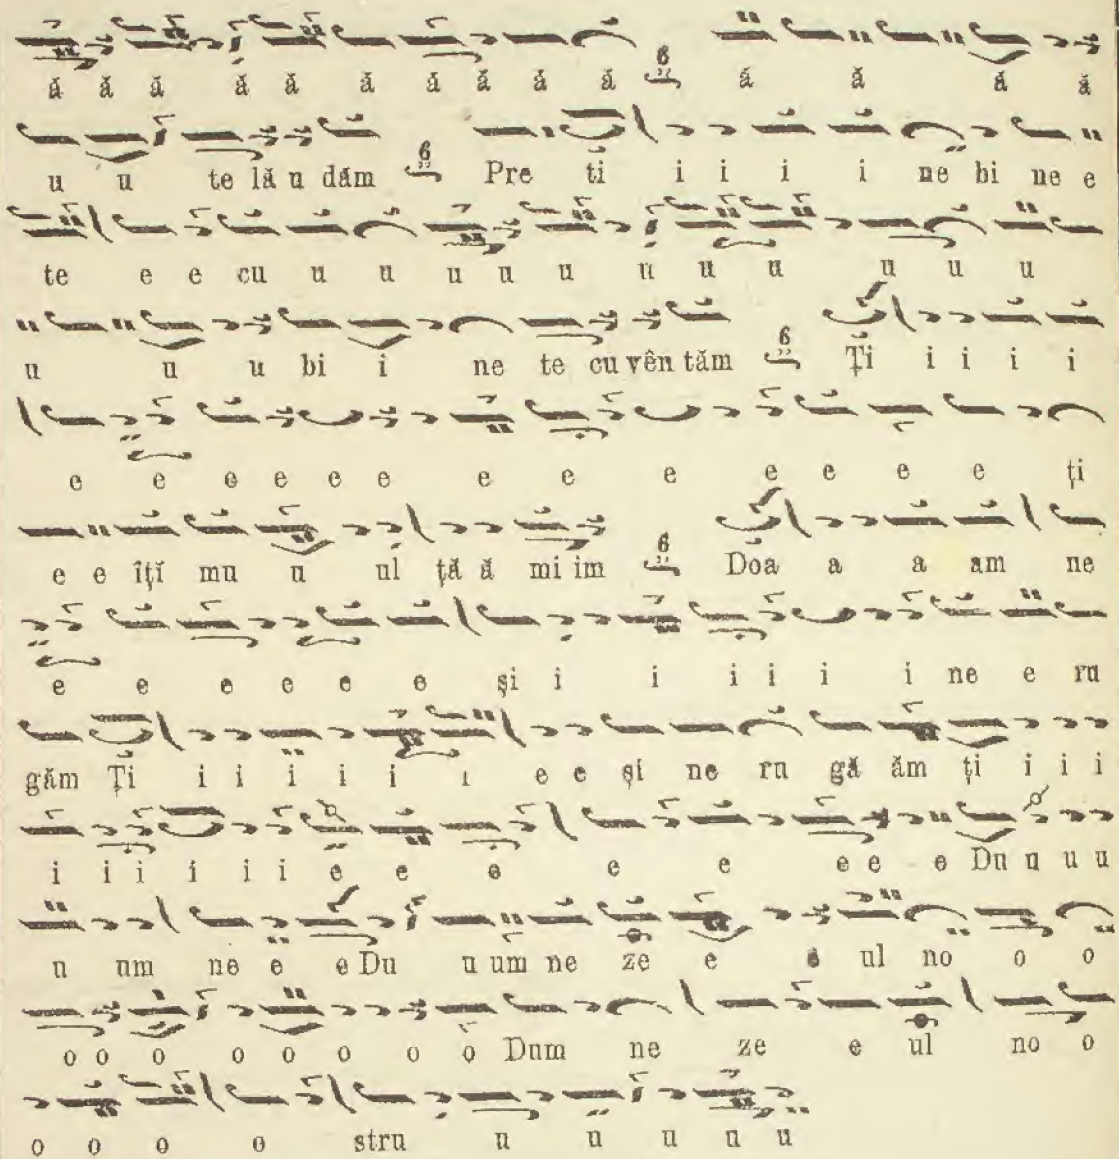 ă ă ă ă ă ă ă ă ă ă ă ă ă ă
u u te lă u dăm Pre ti i i i i ne bi ne e
te e e cu u u u u u u u u u u u
u u u bi i ne te cu vên tăm Ți i i i i
e e e e e e e e e e e e e ți
e e îți mu u ul ță ă mi im Doa a a am ne
e e e e e e și i i i i i i ne e ru
găm Ți i i i i i i e e și ne ru gă ăm ți i i i
i i i i i i e e e e e e e e Du u u u
u um ne e e Du u um ne ze e e ul no o o
o o o o o o o o Dum ne ze e ul no o
o o o o stru u u u u u